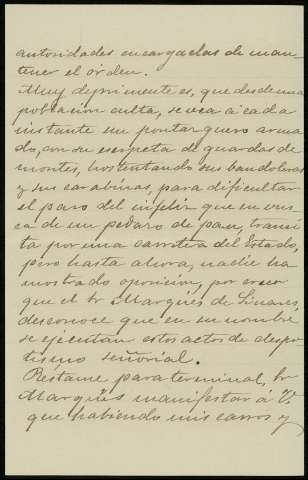 autoridades encargadas de man-
tener el órden.
Muy deprimente es, que desde una
población culta, se vea á cada
instante un portazguero arma-
do, con su escopeta de guardas de
montes, hostentando sus bandoleras
y sus carabinas, para dificultar
el paso del infeliz que en bus-
ca de un pedazo de pan, transi-
ta por una carretera del Estado,
pero hasta ahora, nadie ha
mostrado oposición, por creer
que el Sr Marqués de Linares,
desconoce que en su nombre
se ejecutan estos actos de despo-
tismo señorial.
Réstame para terminar, Sr
Marqués manifestar á V.
que habiendo mis carros y